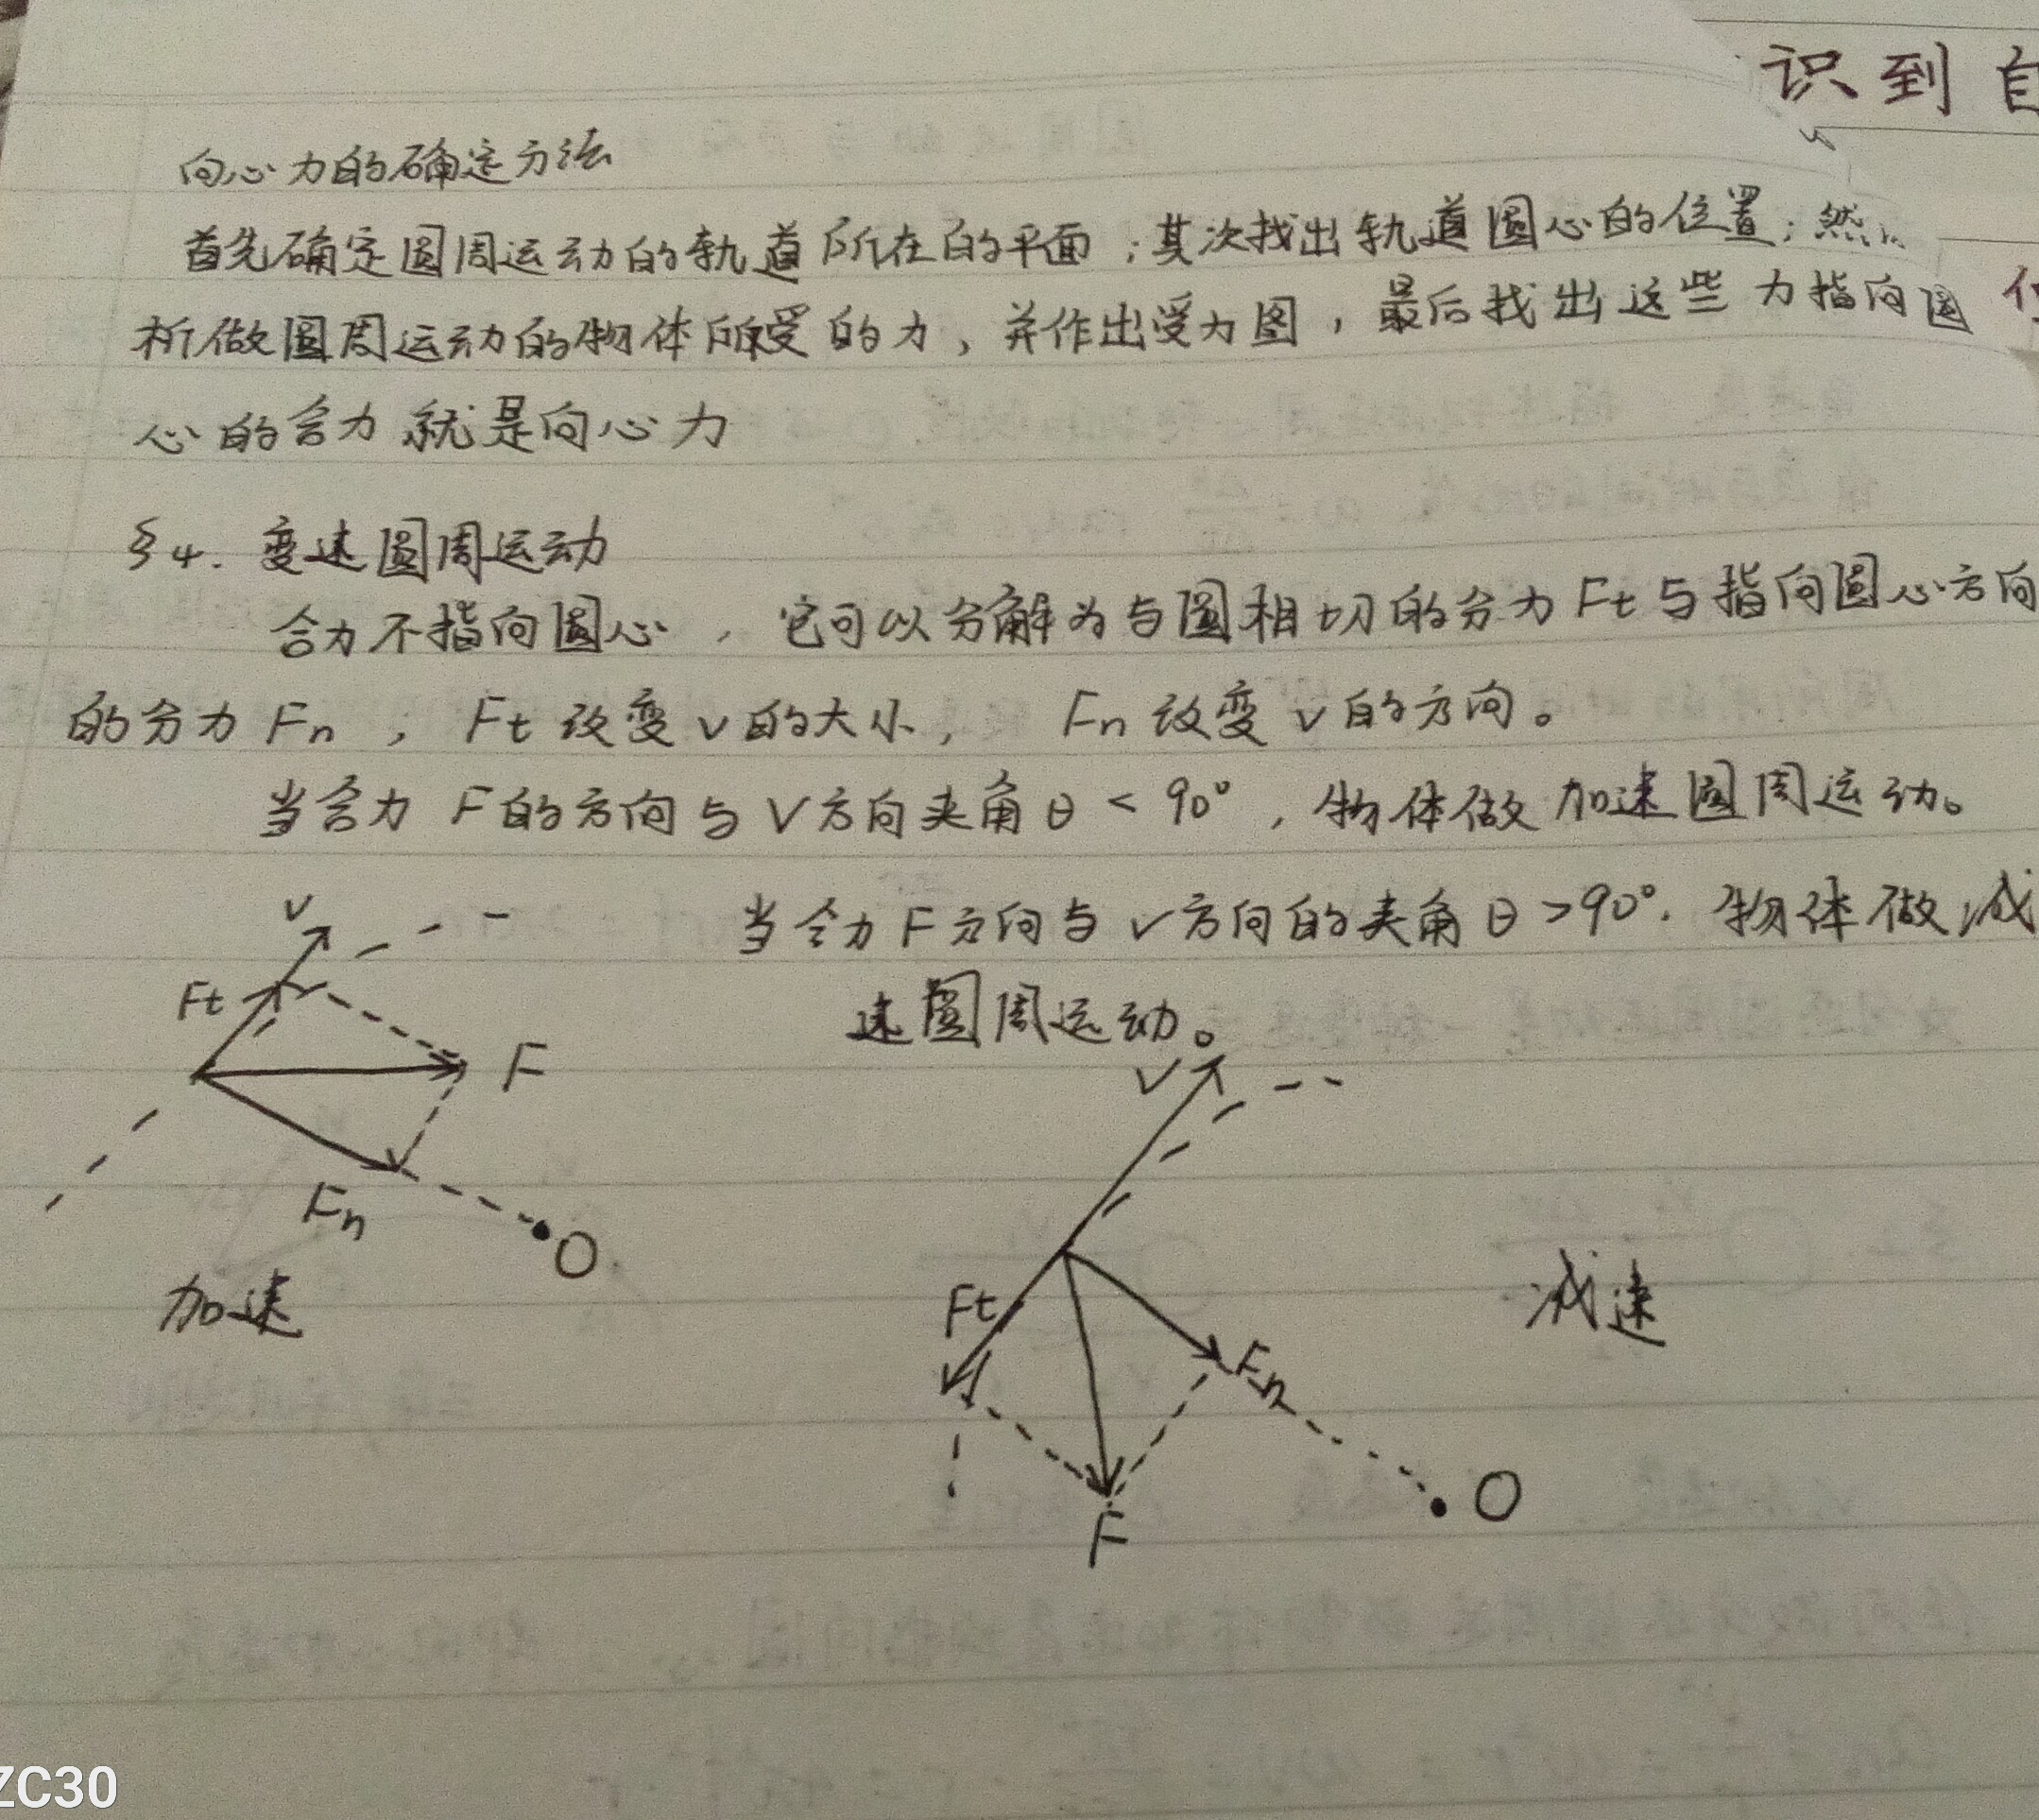 识到自
向心力的确定方法
首先确定圆周运动的轨道所在的平面；其次找出轨道圆心的位置；然
析做圆周运动的物体所受的力，并作出受力图，最后找出这些力指向圆
心的合力就是向心力
§4. 变速圆周运动
合力不指向圆心，它可以分解为与圆相切的分力Ft与指向圆心方向
的分力Fn，Ft改变v的大小，Fn改变v的方向。
当合力F的方向与V方向夹角θ<90°，物体做加速圆周运动。
当合力F方向与v方向的夹角θ>90°.物体做减
速圆周运动。
v
Ft
F
Fn
O
加速
V
Ft
Fn
F
O
减速
ZC30